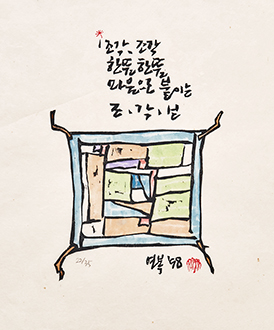 조각, 조각
한뜸 한뜸
마음으로 붙이는
조.각.보
21/45
연복 '98